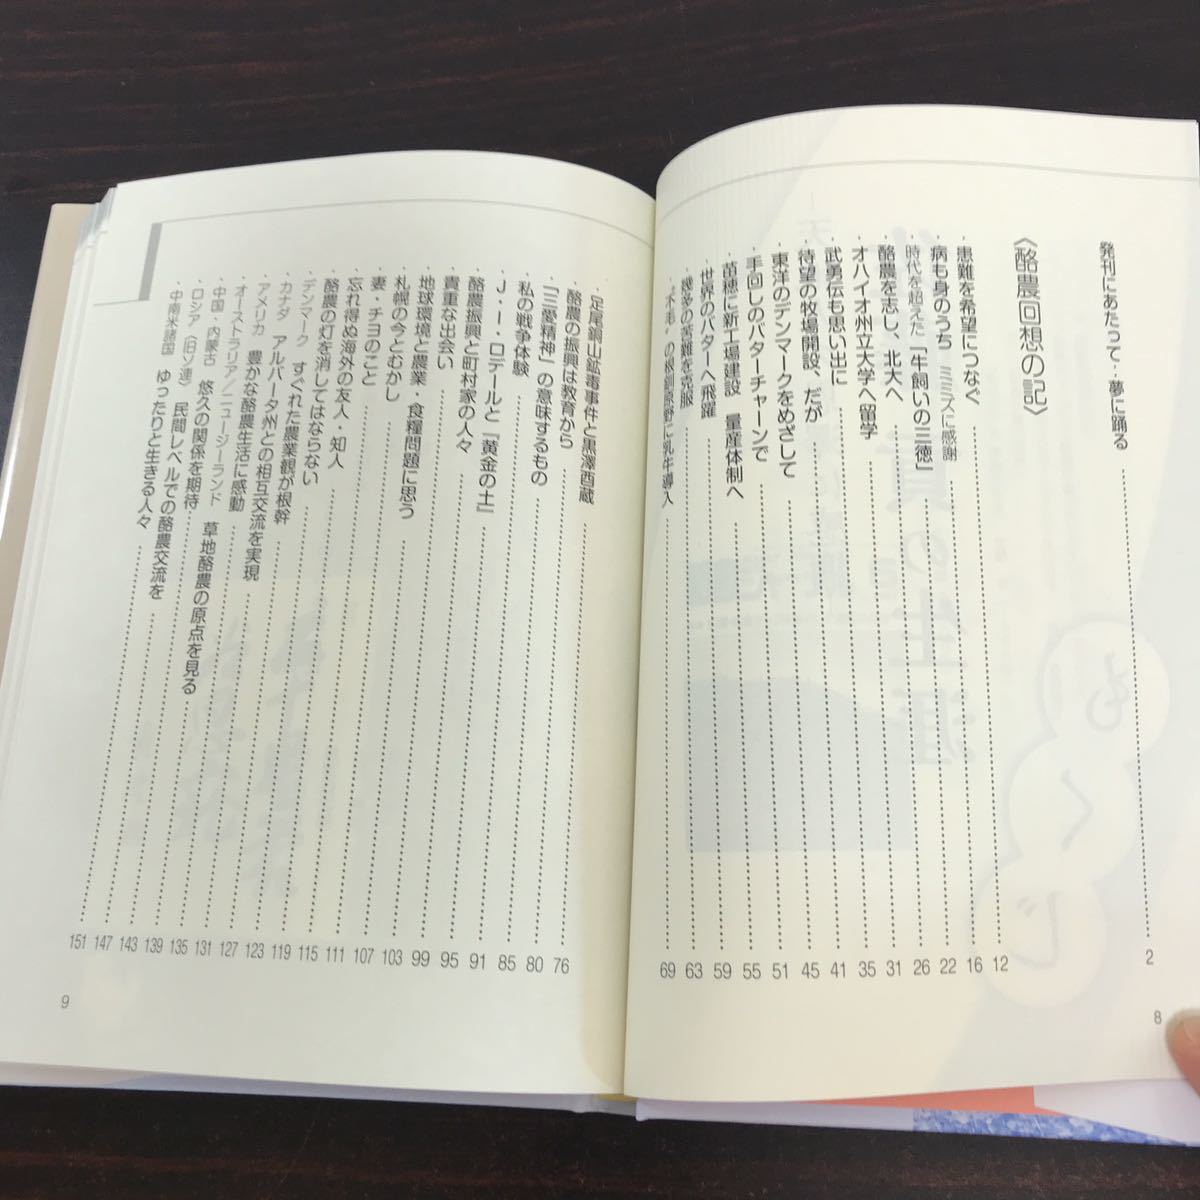 もくじ
発刊にあたって‥夢に踊る……2
〈酪農回想の記〉
・患難を希望につなぐ……12
・病も身のうち ミミズに感謝……16
・時代を超えた「牛飼いの三徳」……22
・酪農を志し、北大へ……26
・オハイオ州立大学へ留学……31
・武勇伝も思い出に……35
・待望の牧場開設、だが……41
・東洋のデンマークをめざして……45
・手回しのバターチャーンで……51
・苗穂に新工場建設 量産体制へ……55
・世界のバターへ飛躍……59
・幾多の苦難を克服……63
・〝不毛〟の根釧原野に乳牛導入……69
8
・足尾銅山鉱毒事件と黒澤酉蔵……76
・酪農の振興は教育から……80
・「三愛精神」の意味するもの……85
・私の戦争体験……91
・J・I・ロデールと『黄金の土』……95
・酪農振興と町村家の人々……99
・貴重な出会い……103
・地球環境と農業・食糧問題に思う……107
・札幌の今とむかし……111
・妻・チヨのこと……115
・忘れ得ぬ海外の友人・知人……119
・酪農の灯を消してはならない……123
・デンマーク すぐれた農業観が根幹……127
・カナダ アルバータ州との相互交流を実現……131
・アメリカ 豊かな酪農生活に感動……135
・オーストラリア/ニュージーランド 草地酪農の原点を見る……139
・中国・内蒙古 悠久の関係を期待……143
・ロシア〈旧ソ連〉 民間レベルでの酪農交流を……147
・中南米諸国 ゆったりと生きる人々……151
9